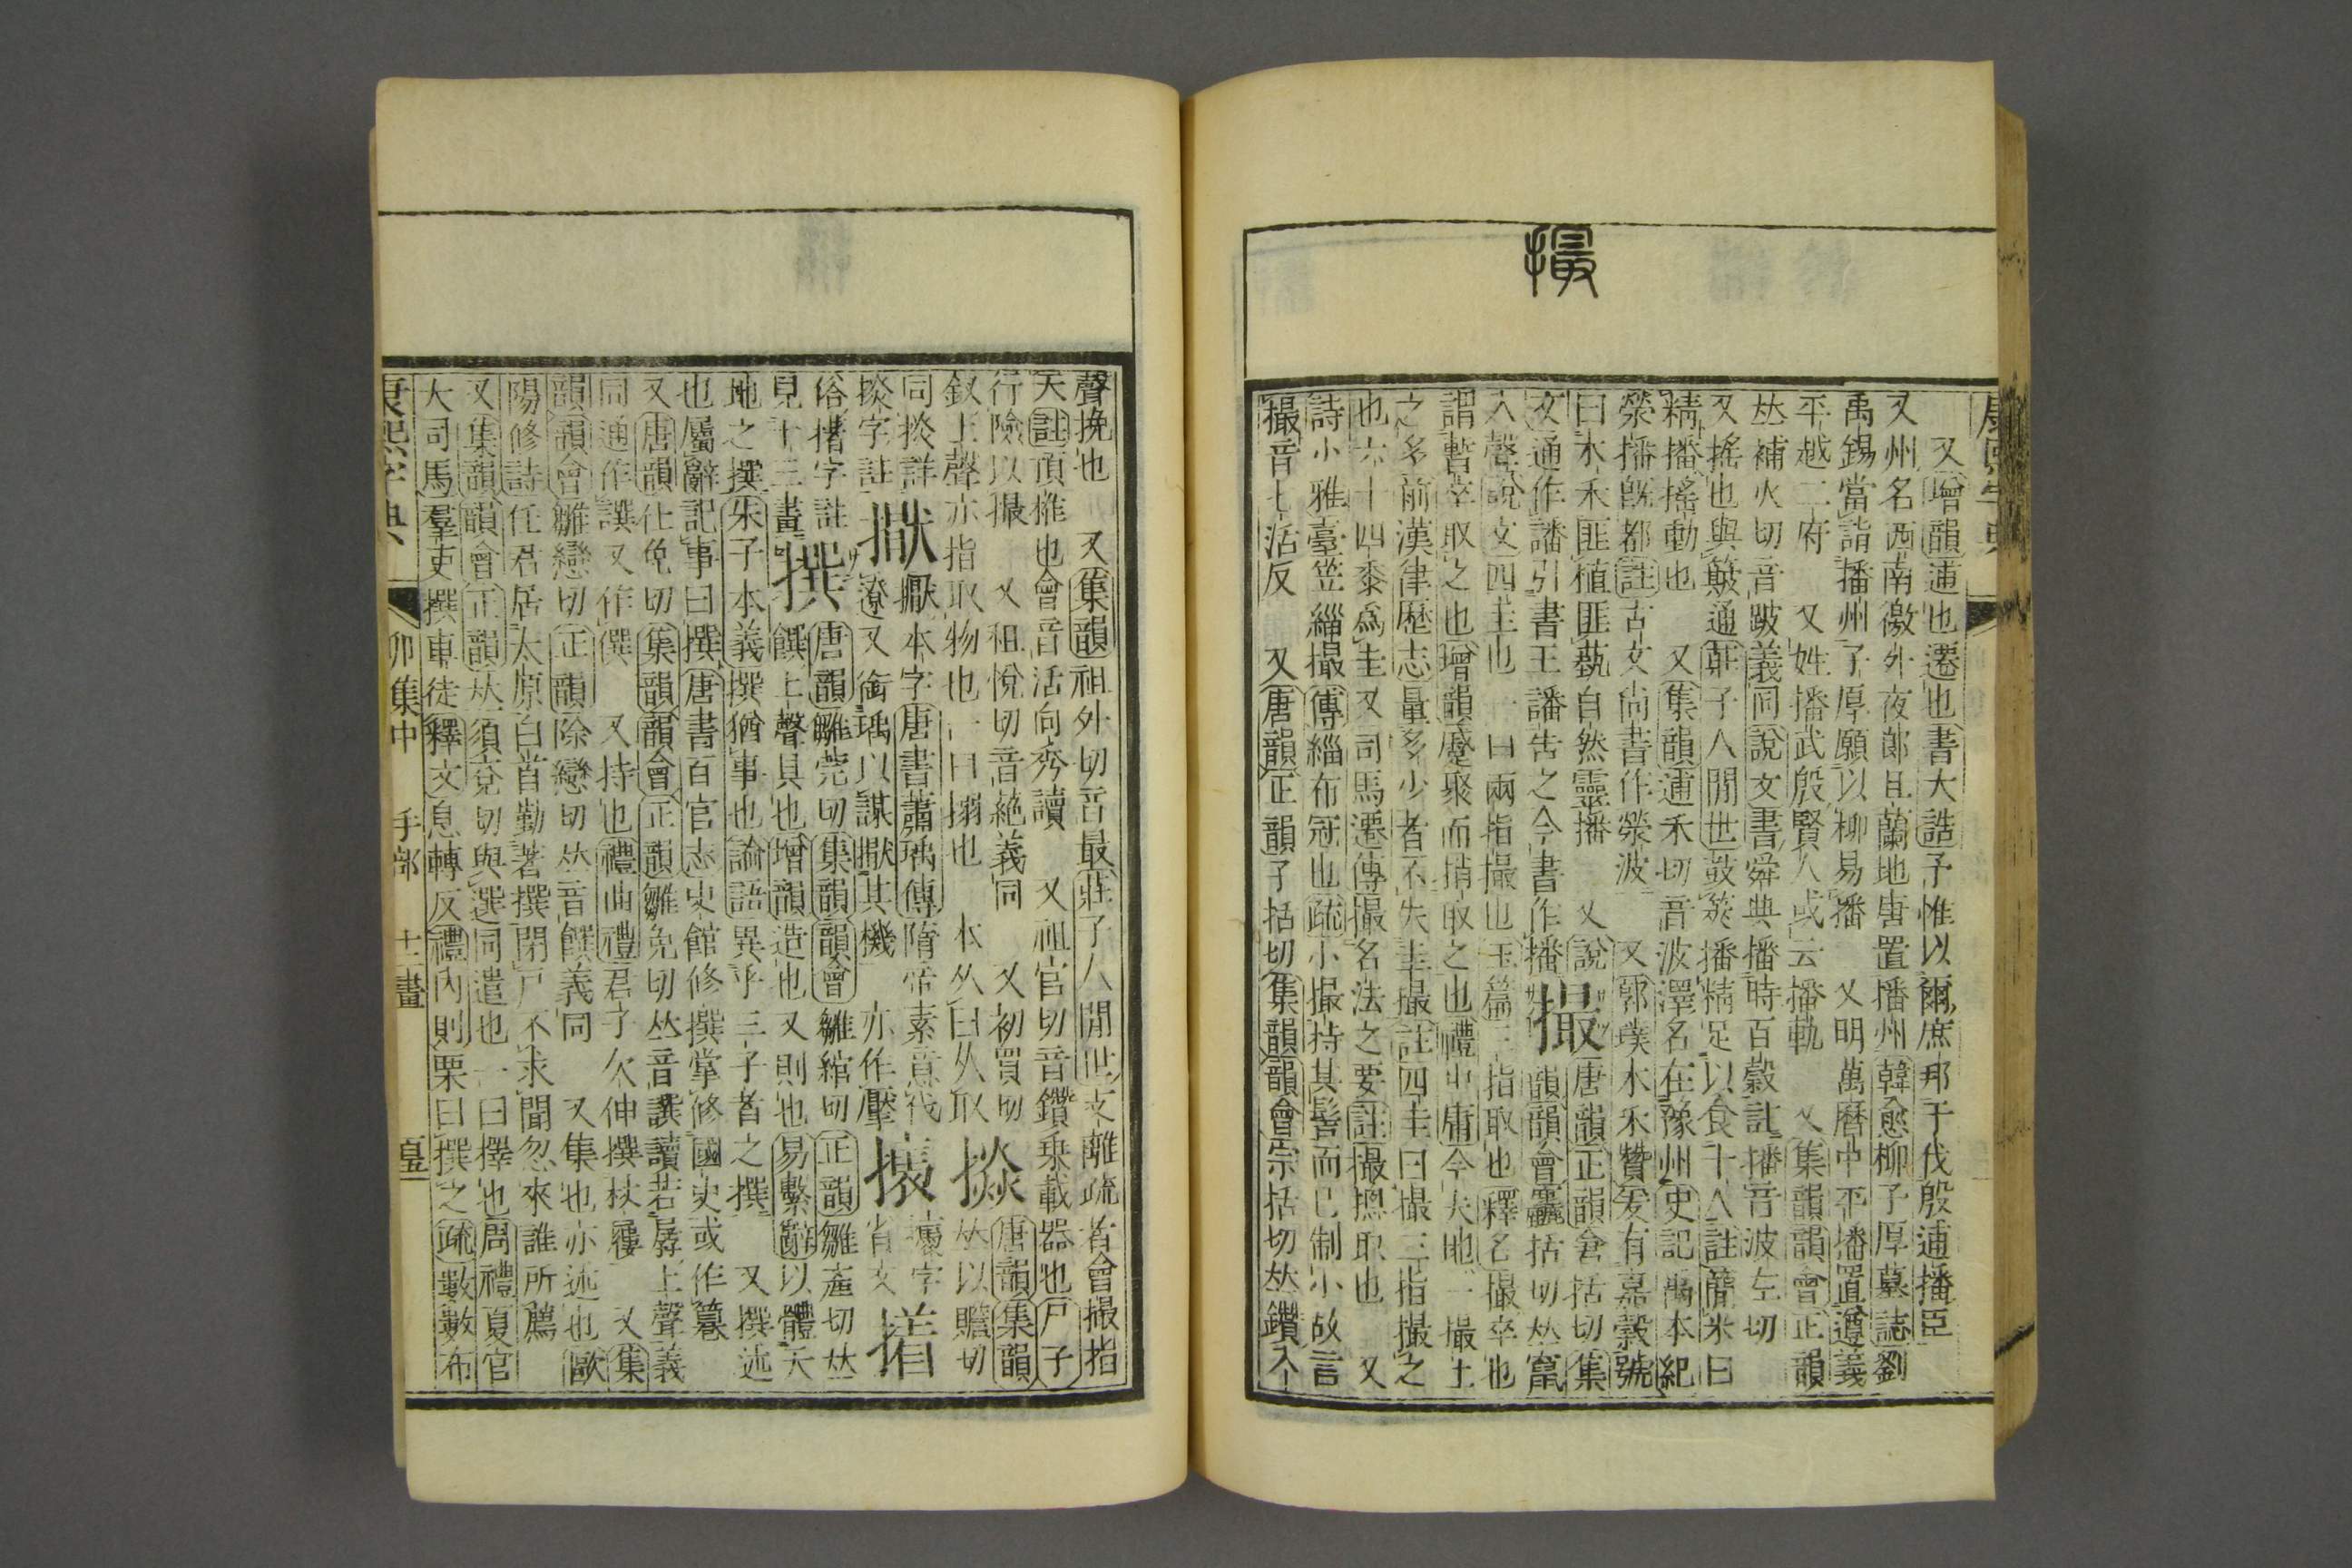 撮
又增韻逋也遷也書大誥予惟以爾庶邦于伐殷逋播臣
又州名西南徼外夜郎且蘭地唐置播州韓愈柳子厚墓誌劉
禹錫當詣播州子厚願以柳易播 又明萬曆中平播置遵義
平越二府 又姓播武殷賢人或云播軌 又集韻韻會正韻
𠀤補火切音跛義同說文書舜典播時百穀註播音波左切
又搖也與簸通莊子人閒世鼓筴播精足以食十人註簡米曰
精播搖動也 又集韻逋禾切音波澤名在豫州史記禹本紀
滎播旣都註古文尚書作滎波 又郭璞木禾贊爰有嘉穀號
曰木禾匪植匪蓺自然靈播 又說
文通作譒引書王譒告之今書作播
撮
唐韻正韻倉括切集
韻韻會麤括切𠀤竄
入聲說文四圭也一曰兩指撮也玉篇三指取也釋名撮卒也
謂暫卒取之也增韻蹙聚而捎取之也禮中庸今夫地一撮土
之多前漢律歷志量多少者不失圭撮註四圭曰撮三指撮之
也六十四黍爲圭又司馬遷傳撮名法之要註撮摠取也 又
詩小雅臺笠緇撮傳緇布冠也疏小撮持其髻而已制小故言
撮音七活反 又唐韻正韻子括切集韻韻會宗括切𠀤鑽入
聲挽也 又集韻祖外切音最莊子人閒世支離疏者會撮指
天註頂椎也會音活向秀讀 又祖官切音鑽乗載器也尸子
行險以撮 又租悅切音絕義同 又初買切
釵上聲亦指取物也一曰搦也 本从冃从取
掞
唐韻集韻
𠀤以贍切
同掞詳
掞字註
𢵧
㵐本字唐書蕭瑀傳隋帝素意伐
遼又銜瑀以謀𢵧其機 亦作壓
㨿
㩀字
省文
撦
俗撦字註
見十三畫
撰
唐韻雛莞切集韻韻會雛綰切正韻雛產切𠀤
饌上聲具也增韻造也又則也易繫辭以體天
地之撰朱子本義撰猶事也論語異乎三子者之撰 又撰述
也屬辭記事曰撰唐書百官志史館修撰掌修國史或作篹
又唐韻仕免切集韻韻會正韻雛免切𠀤音譔讀若孱上聲義
同通作譔又作僎 又持也禮曲禮君子欠伸撰杖屨 又集
韻韻會雛戀切正韻除戀切𠀤音饌義同 又集也亦述也歐
陽修詩任君居太原白首勤著撰閉戸不求聞忽來誰所薦
又集韻韻會正韻𠀤須兗切與選同遣也一曰擇也周禮夏官
大司馬羣吏撰車徒釋文息轉反禮內則栗曰撰之疏數數布
康熙字典
卯集中 手部 十二畫